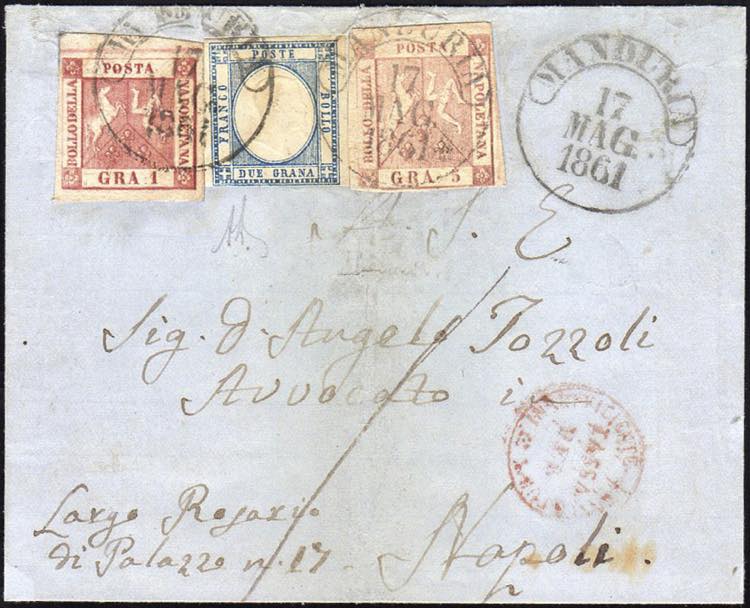 POSTA
BOLLO DELLA
NAPOLETANA
GRA. 1
17
MAG.
1861
POSTE
FRANCO
BOLLO
DUE GRANA
MANDURIA
17
MAG.
1861
POSTA
BOLLO DELLA
NAPOLETANA
GRA. 5
MANDURIA
17
MAG.
1861
E
Sig. D. Angelo Tozzoli
Avvocato in
Largo Rosario
di Palazzo n. 17.
Napoli.
TASSA